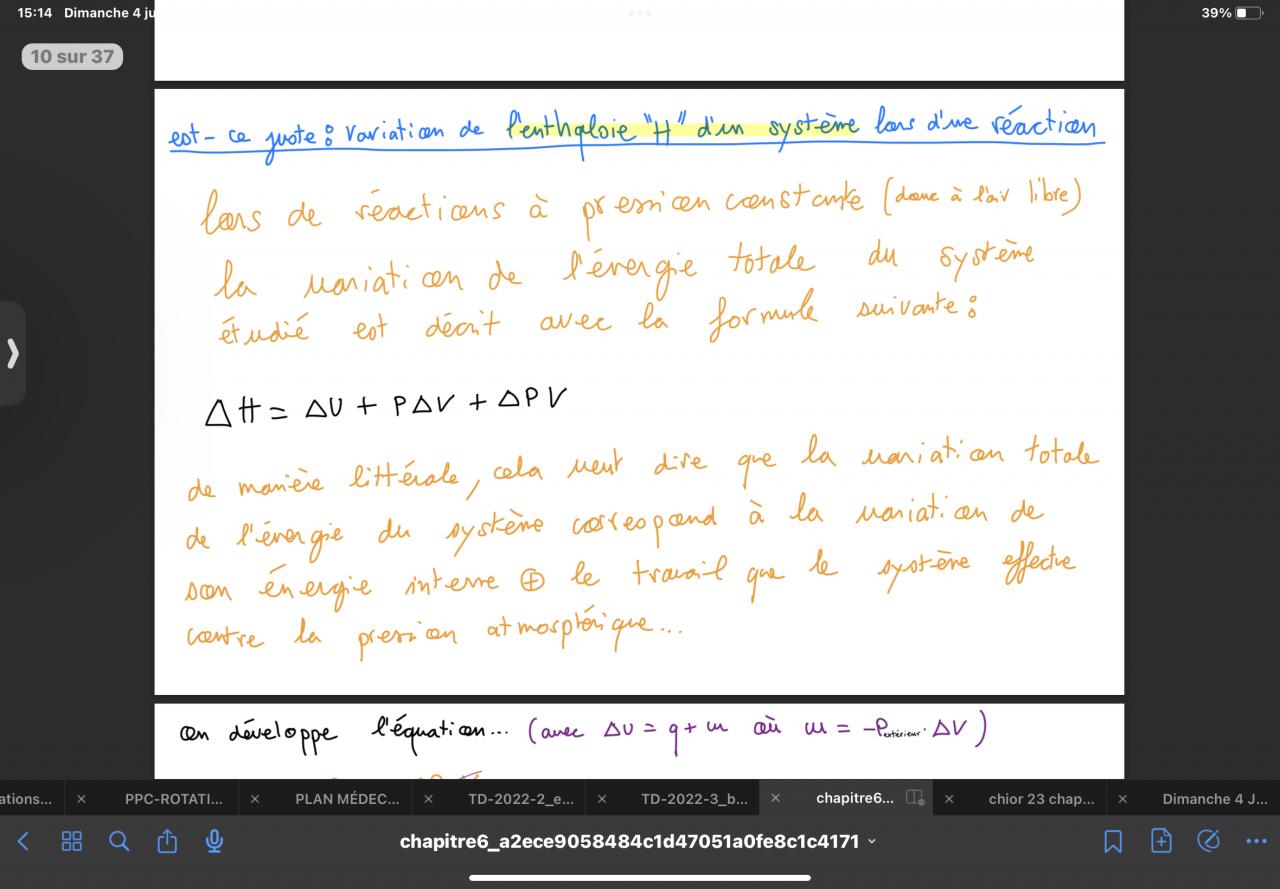 15:14 Dimanche 4 ju
39%
10 sur 37
est-ce juste : variation de l'enthaloie "H" d'un système lors d'une réaction
lors de réactions à pression constante (donc à l'air libre)
la variation de l'énergie totale du système
étudié est décrit avec la formule suivante :
ΔH = ΔU + PΔV + ΔPV
de manière littérale, cela veut dire que la variation totale
de l'énergie du système correspond à la variation de
son énergie interne ⊕ le travail que le système effectue
contre la pression atmosphérique...
on développe l'équation... (avec ΔU = q + w où w = -Pextérieur · ΔV)
ations... × PPC-ROTATI... × PLAN MÉDEC... × TD-2022-2_e... × TD-2022-3_b... × chapitre6... × chior 23 chap... × Dimanche 4 J...
chapitre6_a2ece9058484c1d47051a0fe8c1c4171